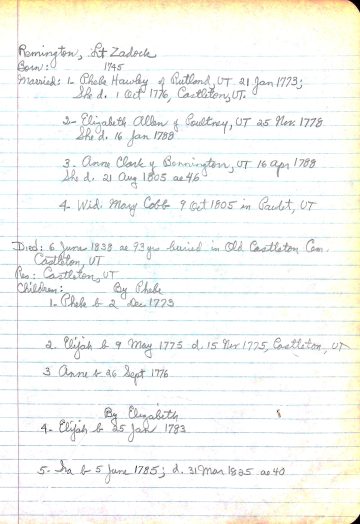 Remington, Lt Zadock
Born: 1745
Married: 1- Phebe Hawley of Rutland, VT 21 Jan 1773;
She d. 1 Oct 1776, Castleton, VT.
2- Elizabeth Allen of Poultney, VT 25 Nov 1778
She d. 16 Jan 1788
3. Anne Clark of Bennington, VT 16 Apr 1788
She d. 21 Aug 1805 ae 46
4. Wid. Mary Cobb 9 Oct 1805 in Pawlet, VT
Died: 6 June 1838 ae 93 yrs buried in Old Castleton Cem.
Castleton, VT
Res: Castleton, VT
Children: By Phebe
1. Phebe b 2 Dec 1773
2. Elijah b 9 May 1775 d. 15 Nov 1775, Castleton, VT
3 Anne b 26 Sept 1776
By Elizabeth
4- Elijah b 25 Jan 1783
5- Ira b 5 June 1785; d. 31 Mar 1825 ae 40